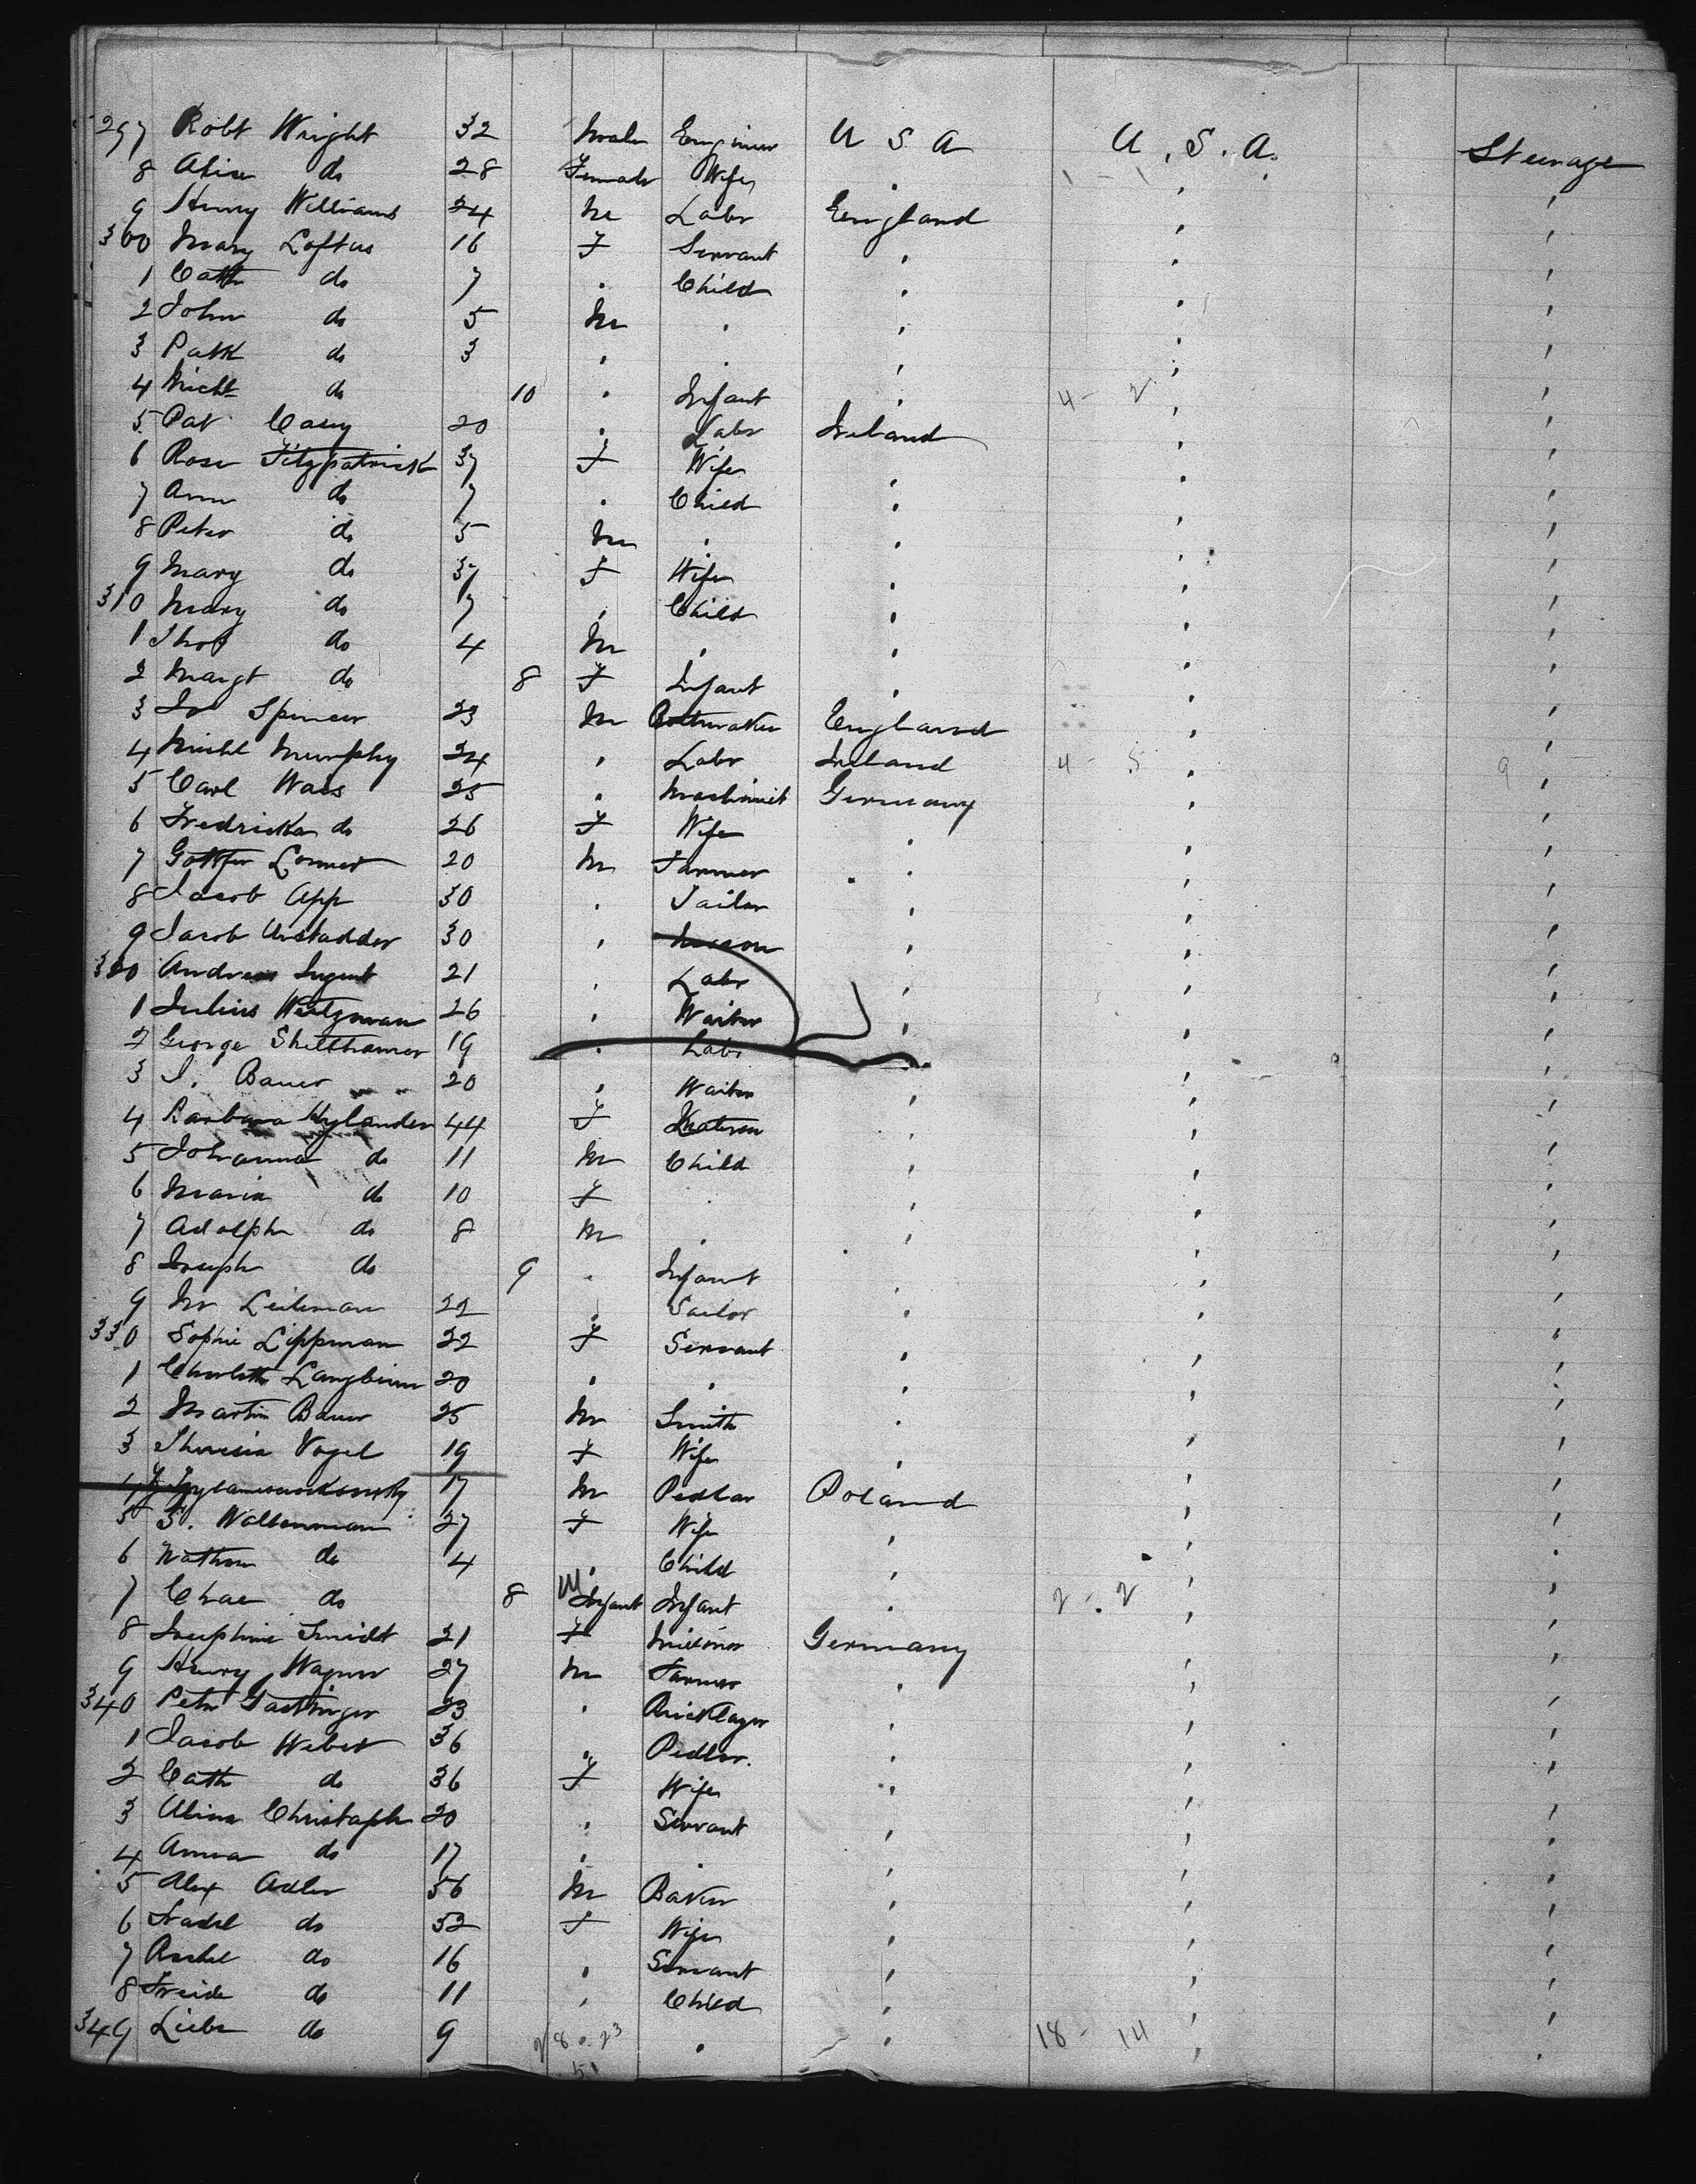 297 Robt Wright 32 Male Engineer U S A U. S. A. Steerage
8 Alice do 28 Female Wife
9 Henry Williams 24 M Labr England
300 Mary Loftus 16 F Servant
1 Cath do 7 Child
2 John do 5 M
3 Patk do 3
4 Michl do 10 Infant 4 - 2
5 Pat Casey 20 Labr Ireland
6 Rose Fitzpatrick 37 F Wife
7 Ann do 7 Child
8 Peter do 5 M
9 Mary do 37 F Wife
310 Mary do 7 Child
1 Thos do 4 M
2 Margt do 8 F Infant
3 Spencer 23 M England
4 Michl Murphy 24 Labr Ireland 4 - 5 9
5 Carl Wais 25 Machinist Germany
6 Fredricka do 26 F Wife
7 20 M Farmer
8 Jacob App 30 Tailor
9 Jacob Urstadder 30 Mason
320 Andreas 21 Labr
1 Julius Weitzman 26 Waiter
2 George Shelthamer 19 Labr
3 J. Bauer 20 Waiter
4 Barbara Hylander 44 F Matron
5 Johanna do 11 M Child
6 Maria do 10 F
7 Adolph do 8 M
8 Joseph do 9 Infant
9 M Leihman 22 Sailor
330 Sophie Lippman 22 F Servant
1 Charlotte Langbein 20
2 Martin Bauer 25 M Smith
3 Theresia Vogel 19 F Wife
4 17 M Pedlar Poland
5 S. Walterman 27 F Wife
6 Nathan do 4 Child
7 Chae do 8 M Infant Infant 2 - 2
8 Josephine Smidt 21 F Milinor Germany
9 Henry Wagner 27 M Farmer
340 Peter Gastinger 23 Bricklayer
1 Jacob Weber 36 Pedler.
2 Cath do 36 F Wife
3 Christoph 20 Servant
4 Anna do 17
5 Alex Adler 56 M Baker
6 do 52 F Wife
7 do 16 Servant
8 Freide do 11 Child
349 Liebe do 9 28 . 23 18 - 14
51